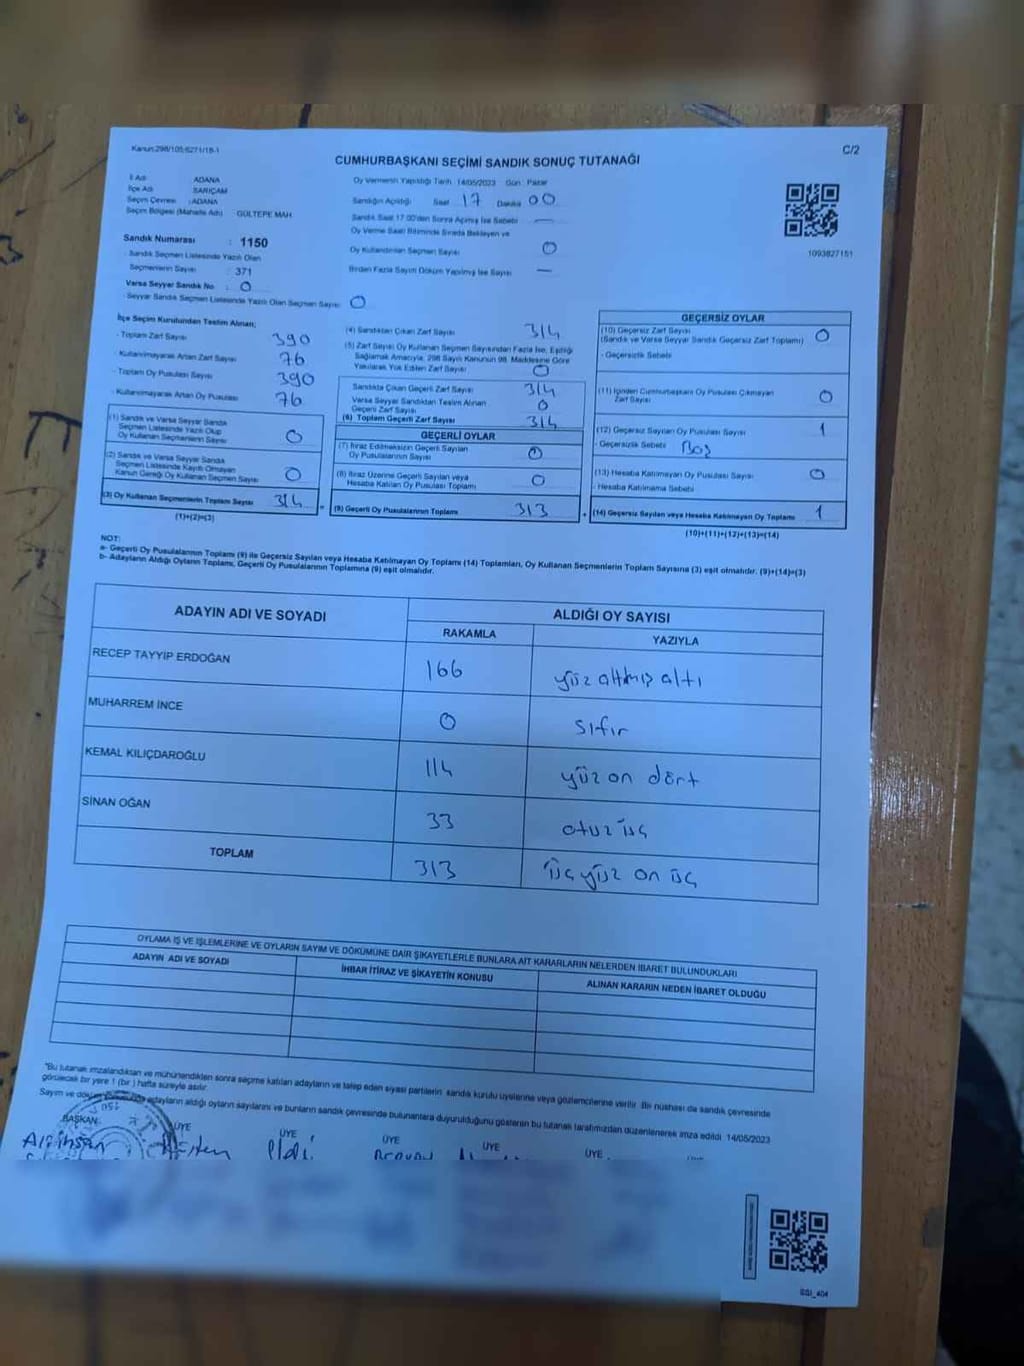 Kanun:298/105;6271/18-1
C/2
CUMHURBAŞKANI SEÇİMİ SANDIK SONUÇ TUTANAĞI
İl Adı : ADANA
İlçe Adı : SARIÇAM
Seçim Çevresi : ADANA
Seçim Bölgesi (Mahalle Adı) : GÜLTEPE MAH.
Oy Vermenin Yapıldığı Tarih: 14/05/2023 Gün: Pazar
Sandığın Açıldığı Saat 17 Dakika 00
Sandık Saat 17.00'den Sonra Açılmış İse Sebebi —
Oy Verme Saati Bitiminde Sırada Bekleyen ve
Oy Kullandırılan Seçmen Sayısı 0
Birden Fazla Sayım Döküm Yapılmış İse Sayısı —
1093827151
Sandık Numarası : 1150
- Sandık Seçmen Listesinde Yazılı Olan
Seçmenlerin Sayısı : 371
Varsa Seyyar Sandık No : 0
- Seyyar Sandık Seçmen Listesinde Yazılı Olan Seçmen Sayısı 0
İlçe Seçim Kurulundan Teslim Alınan;
- Toplam Zarf Sayısı 390
- Kullanılmayarak Artan Zarf Sayısı 76
- Toplam Oy Pusulası Sayısı 390
- Kullanılmayarak Artan Oy Pusulası 76
(1) Sandık ve Varsa Seyyar Sandık
Seçmen Listesinde Yazılı Olup
Oy Kullanan Seçmenlerin Sayısı 0
(2) Sandık ve Varsa Seyyar Sandık
Seçmen Listesinde Kayıtlı Olmayan
Kanun Gereği Oy Kullanan Seçmen Sayısı 0
(3) Oy Kullanan Seçmenlerin Toplam Sayısı 314
(1)+(2)=(3)
(4) Sandıktan Çıkan Zarf Sayısı 314
(5) Zarf Sayısı Oy Kullanan Seçmen Sayısından Fazla İse, Eşitliği
Sağlamak Amacıyla, 298 Sayılı Kanunun 98. Maddesine Göre
Yakılarak Yok Edilen Zarf Sayısı 0
Sandıkta Çıkan Geçerli Zarf Sayısı 314
Varsa Seyyar Sandıktan Teslim Alınan
Geçerli Zarf Sayısı 0
(6) Toplam Geçerli Zarf Sayısı 314
GEÇERLİ OYLAR
(7) İtiraz Edilmeksizin Geçerli Sayılan
Oy Pusulalarının Sayısı 0
(8) İtiraz Üzerine Geçerli Sayılan veya
Hesaba Katılan Oy Pusulası Toplamı 0
= (9) Geçerli Oy Pusulalarının Toplamı 313
GEÇERSİZ OYLAR
(10) Geçersiz Zarf Sayısı
(Sandık ve Varsa Seyyar Sandık Geçersiz Zarf Toplamı) 0
- Geçersizlik Sebebi
(11) İçinden Cumhurbaşkanı Oy Pusulası Çıkmayan
Zarf Sayısı 0
(12) Geçersiz Sayılan Oy Pusulası Sayısı 1
- Geçersizlik Sebebi Boş
(13) Hesaba Katılmayan Oy Pusulası Sayısı 0
- Hesaba Katılmama Sebebi
+ (14) Geçersiz Sayılan veya Hesaba Katılmayan Oy Toplamı 1
(10)+(11)+(12)+(13)=(14)
NOT:
a- Geçerli Oy Pusulalarının Toplamı (9) ile Geçersiz Sayılan veya Hesaba Katılmayan Oy Toplamı (14) Toplamları, Oy Kullanan Seçmenlerin Toplam Sayısına (3) eşit olmalıdır. (9)+(14)=(3)
b- Adayların Aldığı Oyların Toplamı, Geçerli Oy Pusulalarının Toplamına (9) eşit olmalıdır.
ADAYIN ADI VE SOYADI ALDIĞI OY SAYISI
RAKAMLA YAZIYLA
RECEP TAYYİP ERDOĞAN 166 yüz altmış altı
MUHARREM İNCE 0 sıfır
KEMAL KILIÇDAROĞLU 114 yüz on dört
SİNAN OĞAN 33 otuz üç
TOPLAM 313 üç yüz on üç
OYLAMA İŞ VE İŞLEMLERİNE VE OYLARIN SAYIM VE DÖKÜMÜNE DAİR ŞİKAYETLERLE BUNLARA AİT KARARLARIN NELERDEN İBARET BULUNDUKLARI
ADAYIN ADI VE SOYADI İHBAR İTİRAZ VE ŞİKAYETİN KONUSU ALINAN KARARIN NEDEN İBARET OLDUĞU
"Bu tutanak imzalandıktan ve mühürlendikten sonra seçime katılan adayların ve talep eden siyasi partilerin sandık kurulu üyelerine veya gözlemcilerine verilir. Bir nüshası da sandık çevresinde
görülecek bir yere 1 (bir) hafta süreyle asılır.
Sayım ve döküm adayların aldığı oyların sayılarını ve bunların sandık çevresinde bulunanlara duyurulduğunu gösteren bu tutanak tarafımızdan düzenlenerek imza edildi. 14/05/2023
BAŞKAN ÜYE ÜYE ÜYE ÜYE ÜYE